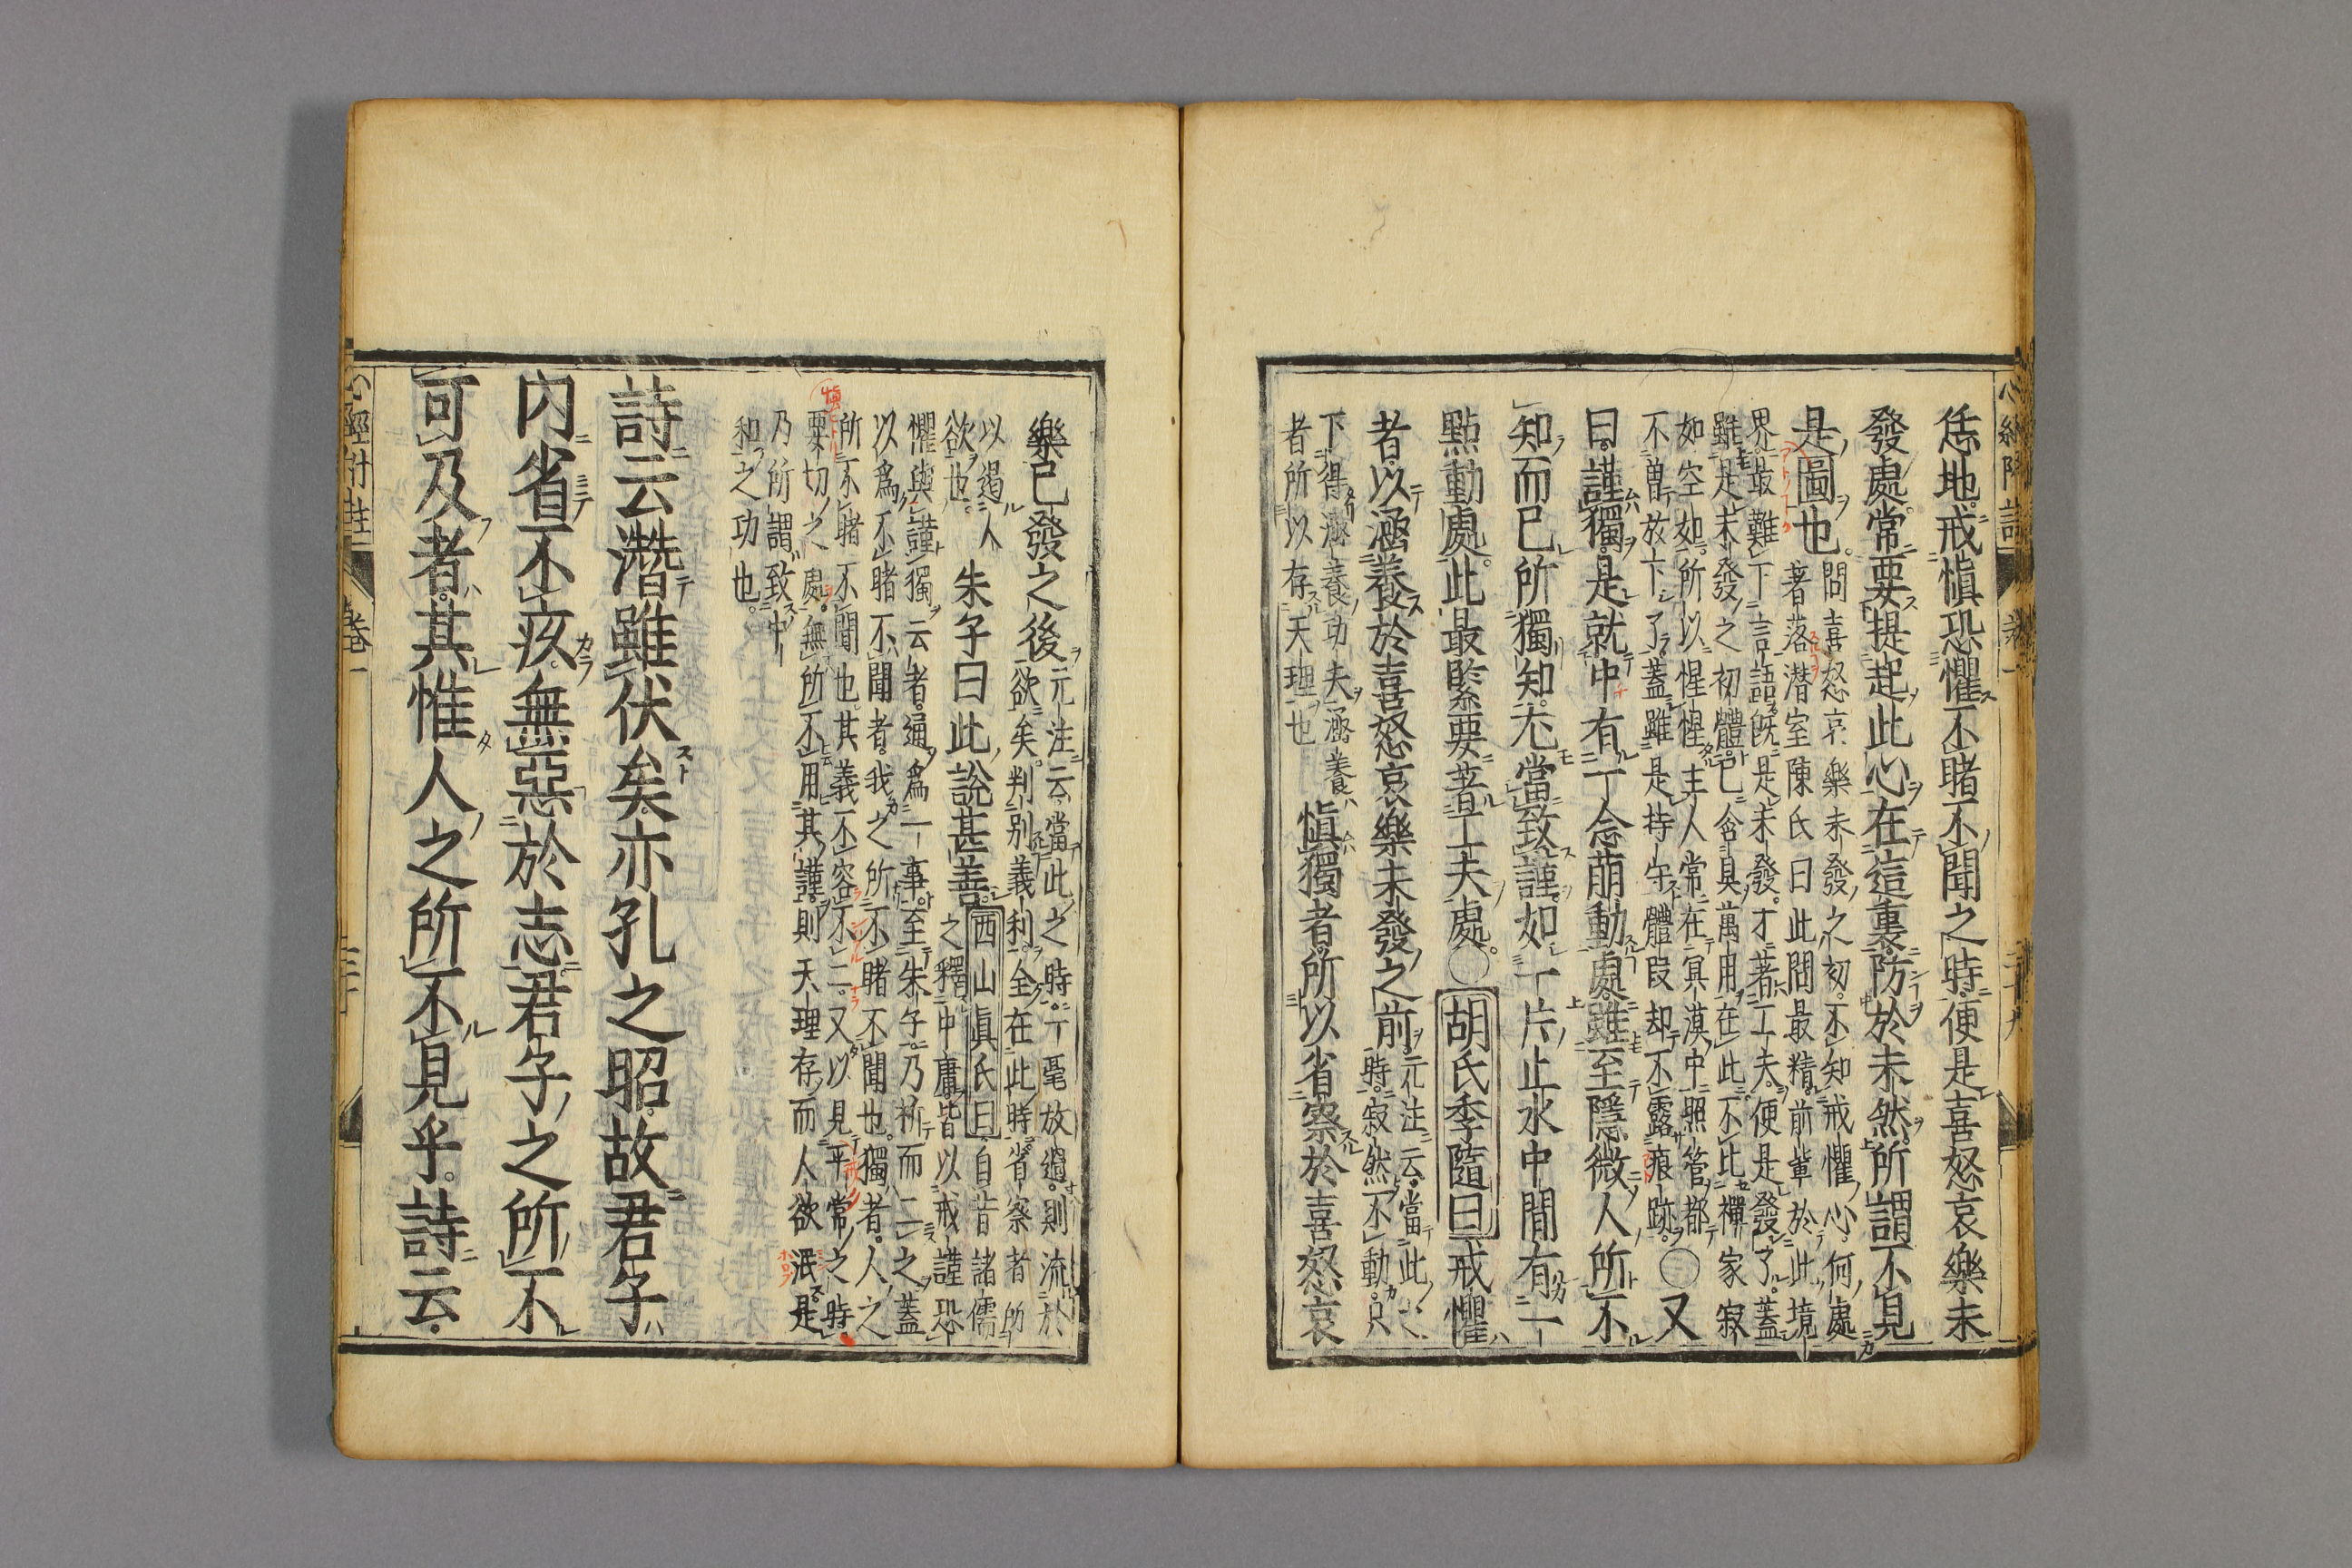 心經附註 卷一 二十九
恁地戒愼恐懼不睹不聞之時便是喜怒哀樂未
發處常要提起此心在這裏防於未然所謂不見
是圖也
問喜怒哀樂未發之初不知戒懼心何處
著落潜室陳氏曰此問最精前輩於此境
界最難下言語旣是未發才著工夫便是發了蓋
雖是未發之初體已含具萬用在此不比禪家寂
如空如所以惺惺主人常在冥漠中照管都
不曾放下了蓋雖是持守體段却不露痕跡
〇又
曰謹獨是就中有一念萠動處雖至隱微人所不
知而已所獨知尤當致謹如一片止水中間有一
點動處此最緊要著工夫處〇胡氏季隨曰戒懼
者以涵養於喜怒哀樂未發之前
元注云當此之
時寂然不動只
下得涵養功夫涵養
者所以存天理也
愼獨者所以省察於喜怒哀
樂已發之後
元注云當此之時一毫放過則流於
欲矣判別義利全在此時省察者所
以遏人
欲也
朱子曰此說甚善
西山眞氏曰自昔諸儒
之釋中庸皆以戒謹恐
懼與謹獨云者通爲一事至朱子乃析而二之蓋
以爲不睹不聞者我之所不睹不聞也獨者人之
所不睹不聞也其義不容不二又以見平常之時
要切之處無所不用其謹則天理存而人欲泯是
乃所謂致中
和之功也
詩云潛雖伏矣亦孔之昭故君子
內省不疚無惡於志君子之所不
可及者其惟人之所不見乎詩云
心經附註 卷一 三十